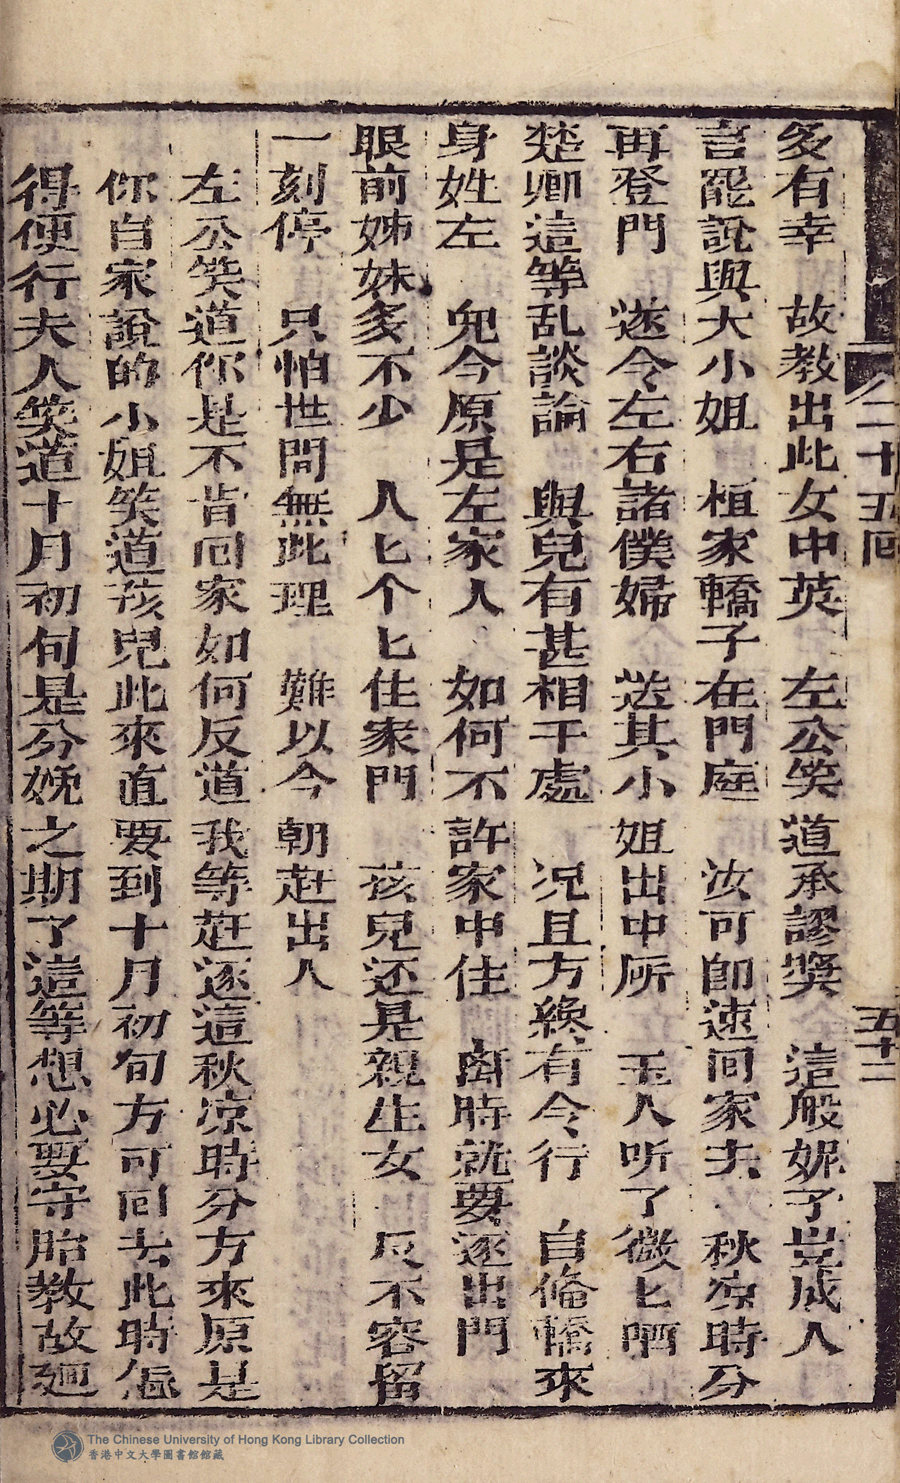 二十五回
五十二
多有幸　故教出此女中英　左公笑道承謬獎　這般妮子豈成人
言罷說與大小姐　桓家轎子在門庭　汝可即速回家去　秋凉時分
再登門　遂令左右諸僕婦　送其小姐出中所　玉人听了微匕哂
楚卿這等乱談論　與兒有甚相干處　况且方絲有令行　自偹轎來
身姓左　兒今原是左家人　如何不許家中住　啇時就要逐出門
眼前姊妹多不少　人匕个匕住家門　孩兒还是親生女　反不容留
一刻停　只怕世間無此理　難以今朝赶出人
左公笑道你是不肯回家如何反道我等赶逐這秋凉時分方來原是
你自家說的小姐笑道孩兒此來直要到十月初旬方可回去此時怎
得便行夫人笑道十月初旬是分娩之期了這等想必要守胎教故廻
The Chinese University of Hong Kong Library Collection
香港中文大學圖書館館藏